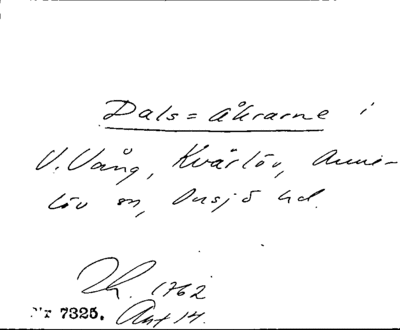 Dals=åkrarne i
V. Vång, Kvärlöv, Anne-
löv sn, Onsjö hd.
1762
Nr 7325. Akt 14.